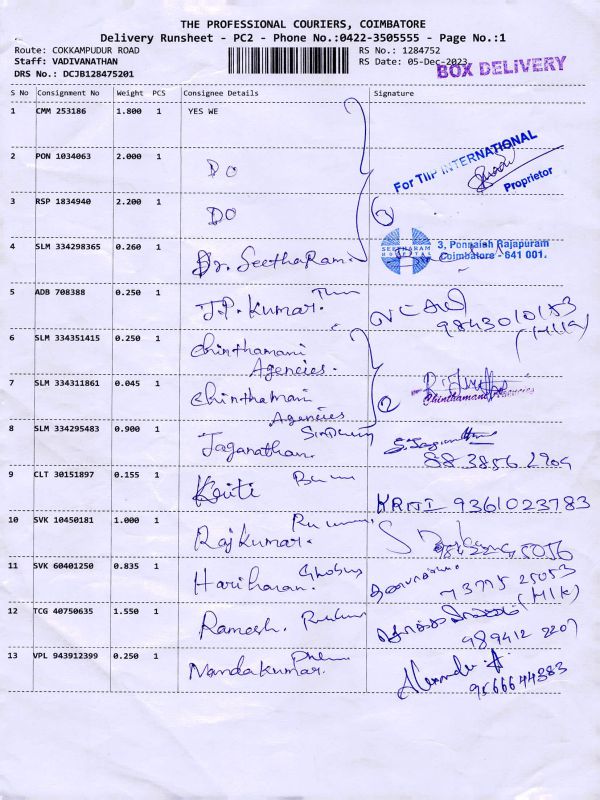 THE PROFESSIONAL COURIERS, COIMBATORE
Delivery Runsheet - PC2 - Phone No.:0422-3505555 - Page No.:1
Route: COKKAMPUDUR ROAD RS No.: 1284752
Staff: VADIVANATHAN RS Date: 05-Dec-2023
BOX DELIVERY
DRS No.: DCJB128475201
S No Consignment No Weight PCS Consignee Details Signature
1 CMM 253186 1.800 1 YES WE
2 PON 1034063 2.000 1 DO
For TIIP INTERNATIONAL
Proprietor
3 RSP 1834940 2.200 1 DO 3
4 SLM 334298365 0.260 1 Dr. SeethaRam.
SEETHARAM HOSPITAL
3, Ponnaiah Rajapuram
Coimbatore - 641 001.
5 ADB 708388 0.250 1 J.P. Kumar. 9843010153
6 SLM 334351415 0.250 1 Chinthamani
Agencies.
7 SLM 334311861 0.045 1 Chinthamani
Agencies 2
Chinthamani Agencies
8 SLM 334295483 0.900 1 Jaganathan.
9 CLT 30151897 0.155 1 Kruti KRITI 9361023783
10 SVK 10450181 1.000 1 Rajkumar.
11 SVK 60401250 0.835 1 Hariharan. 73795 25053
12 TCG 40750635 1.550 1 Ramesh. 989412 2207
13 VPL 943912399 0.250 1 Nandakumar. 9566644383